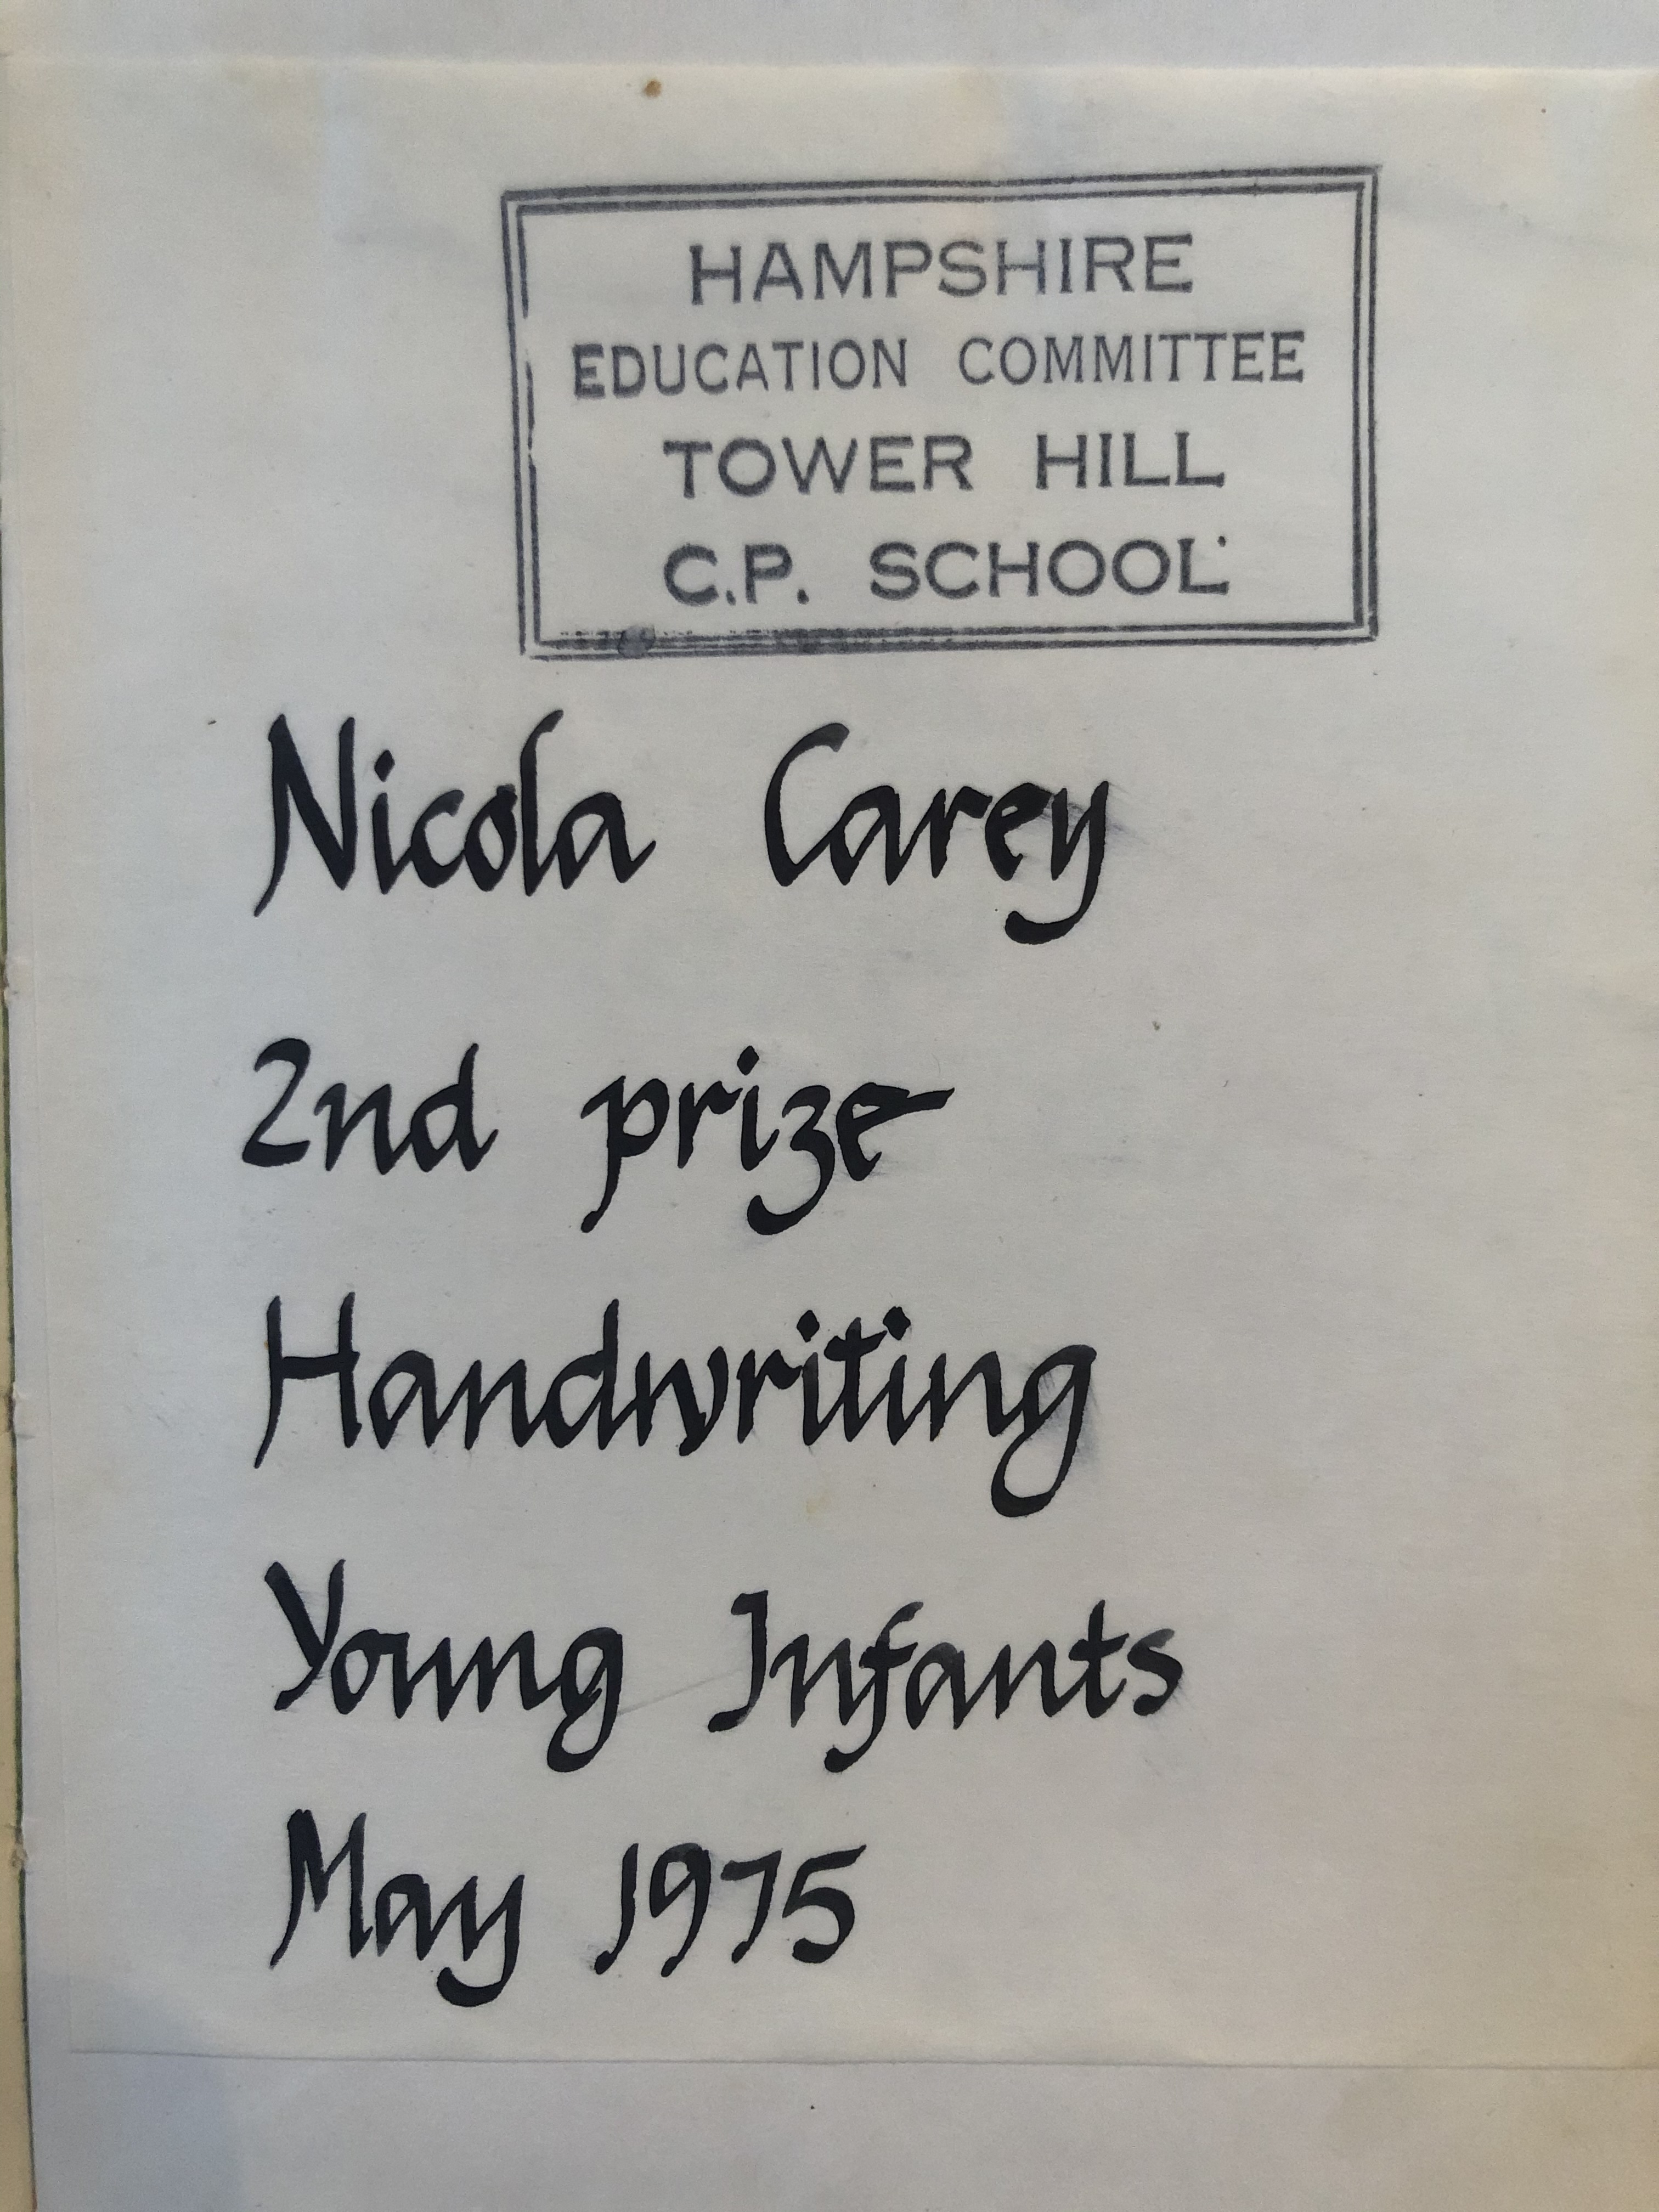 HAMPSHIRE
EDUCATION COMMITTEE
TOWER HILL
C.P. SCHOOL
Nicola Carey
2nd prize
Handwriting
Young Infants
May 1975